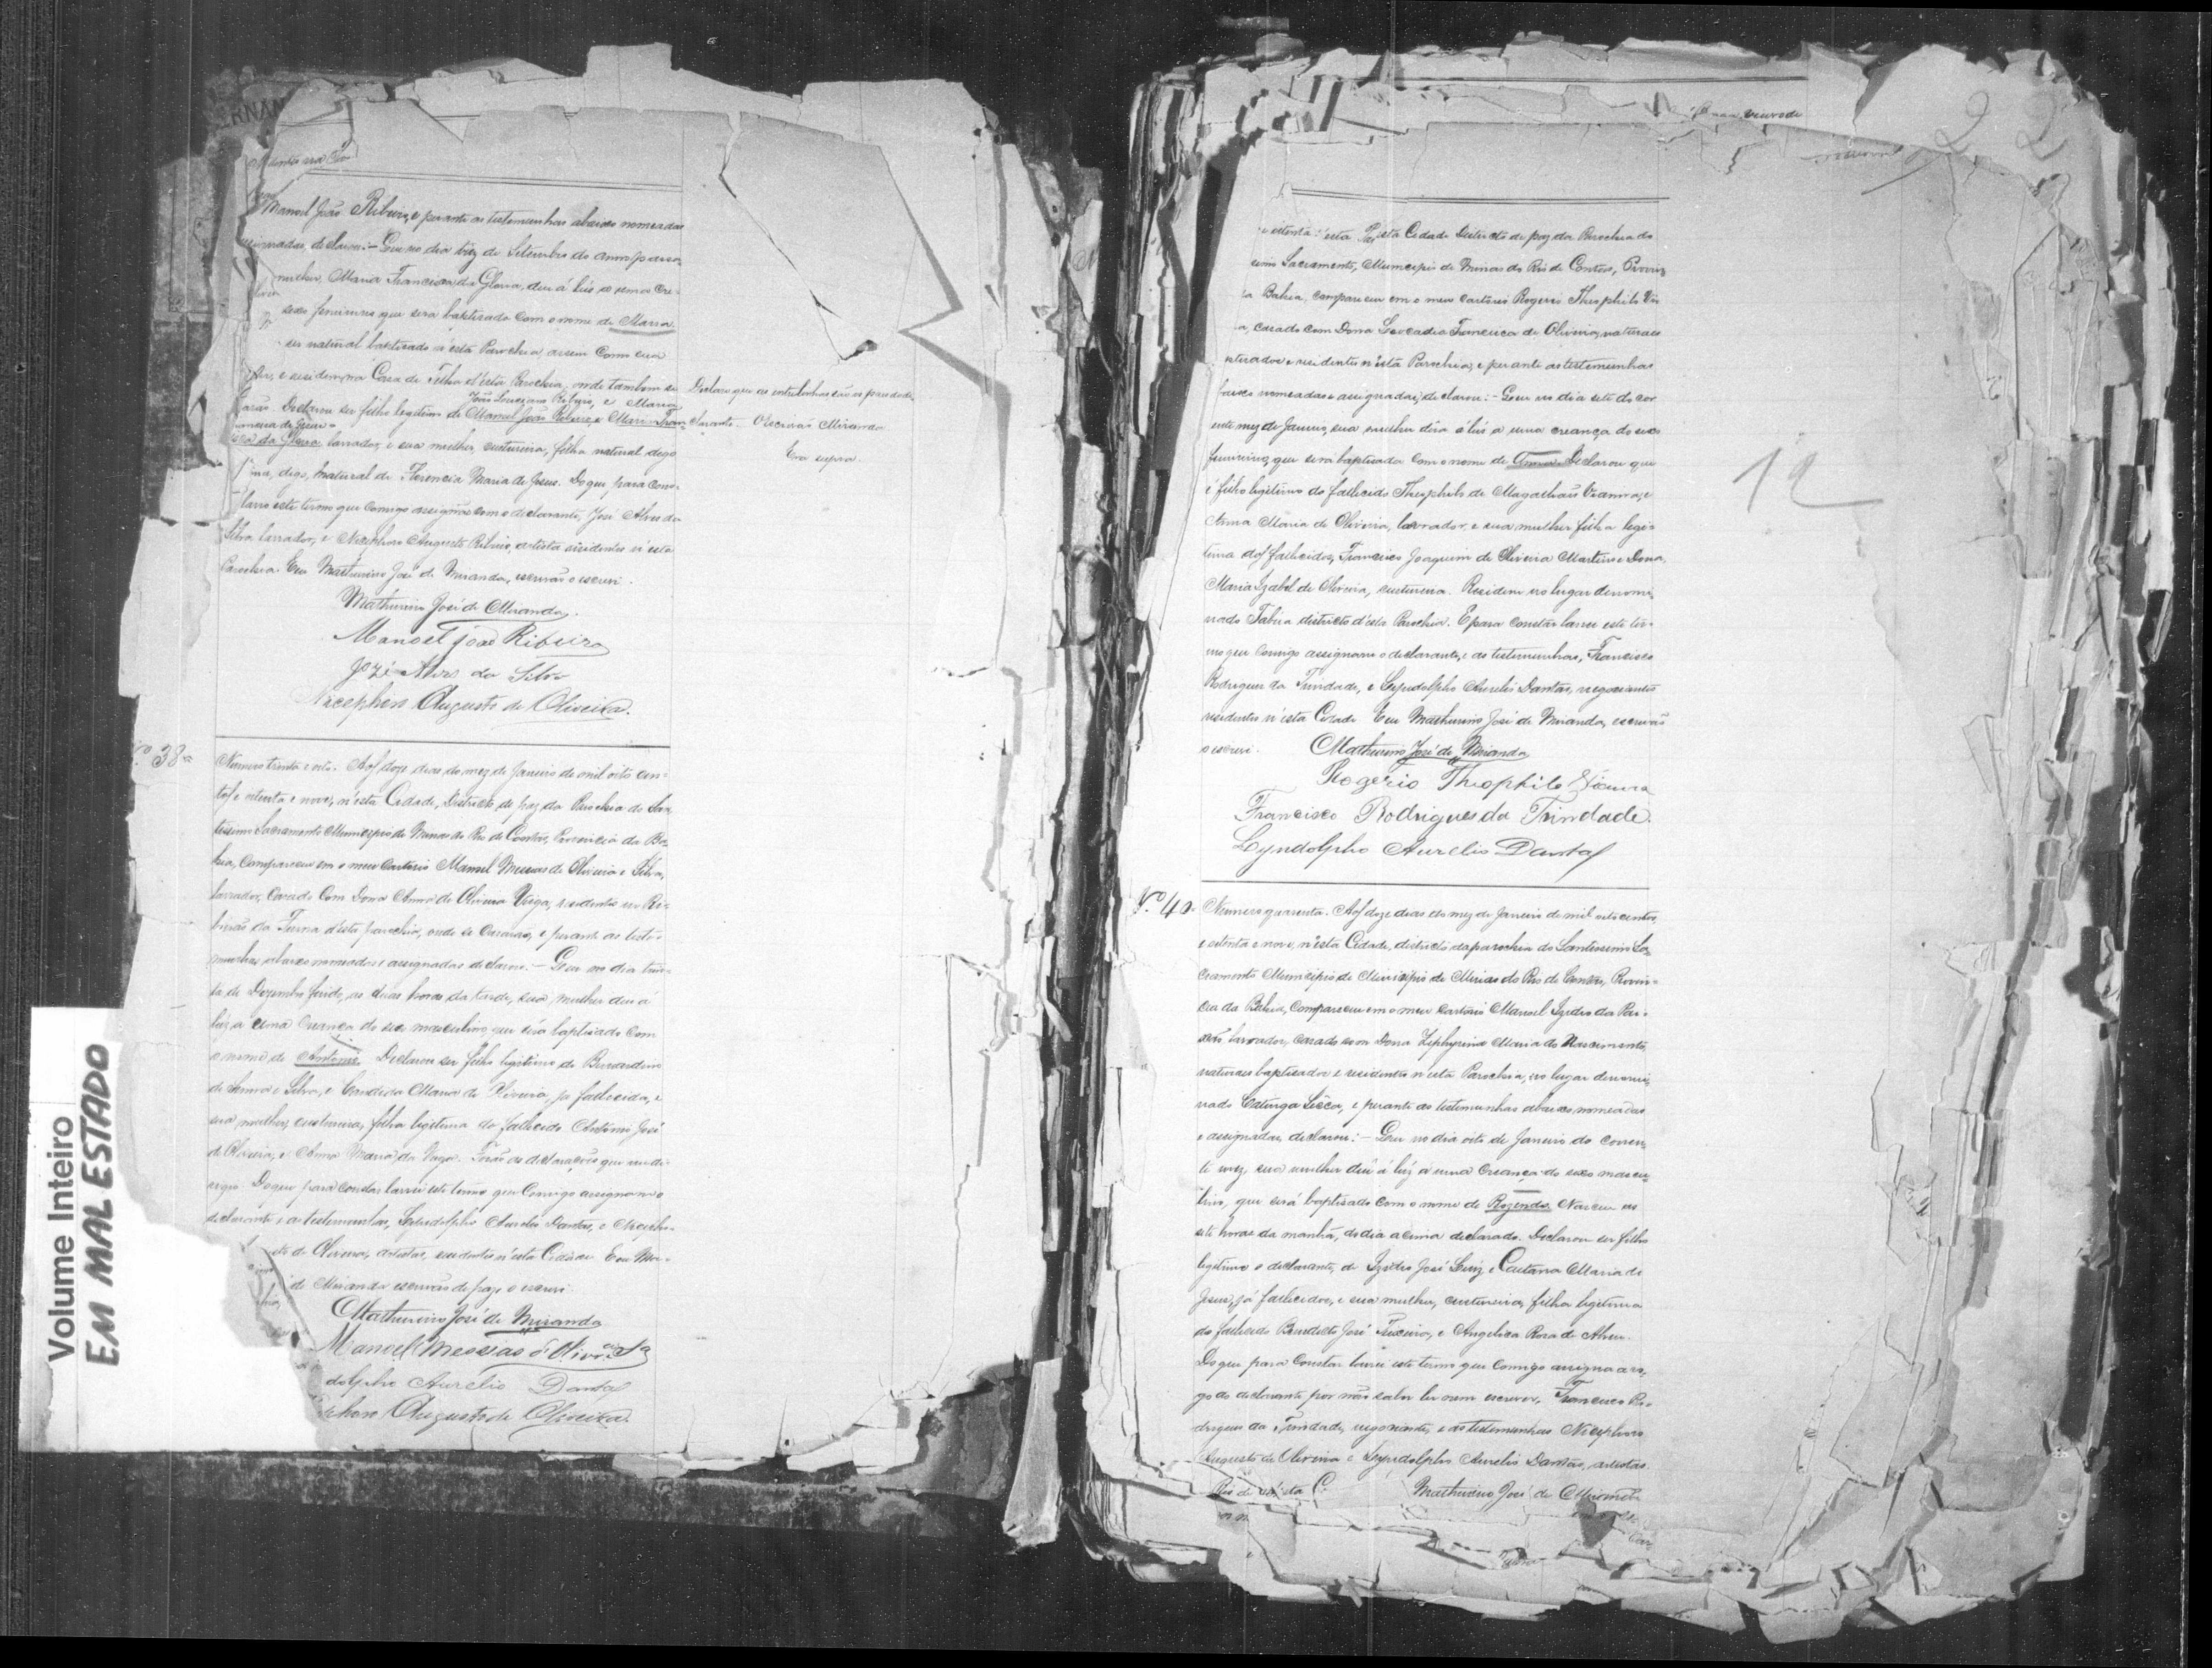 Manoel João Ribeiro, e perante as testemunhas abaixo nomeadas
assignadas, declarou: - Que no dia dez de Setembro do anno passa-
mulher Maria Francisca da Gloria, deu á luz a uma Cre-
sexo feminino que será baptisada com o nome de Maria
ser natural baptisado n'esta Parochia assim como sua
e residem na Casa de Telha d'esta Parochia, onde tambem se
casarão. Declarou ser filho legitimo de Manoel João Ribeiro e Maria Fran-
João Lourenço Ribeiro, e Maria
da Gloria lavrador, e sua mulher, custureira, filha natural digo
digo, natural de Florencia Maria de Jesus. Do que para cons-
lavro este termo que comigo assignão com o declarante, José Alves da
Silva lavrador, e Nicephoro Augusto Ribeiro, artista residentes n'esta
Parochia Eu Mathurino José de Miranda, escrivão o escrevi.
Mathurino José de Miranda.
Manoel João Ribeiro
Jozé Alves da Silva
Nicephoro Augusto de Oliveira.
Declaro que as entrelinhas são as
Escrivão Miranda
Era supra.
Nº 38
Numero trinta e oito. Aos doze dias do mez de Janeiro de mil oito cen-
tos e setenta e nove, n'esta Cidade, Districto de paz da Parochia do San-
tissimo Sacramento Municipio de Minas do Rio de Contas, Provincia da Ba-
hia, compareceu em o meu Cartorio Manoel Messias de Oliveira e Silva,
lavrador, casado com Dona Anna de Oliveira Veiga, residentes no Ri-
beirão da Furna d'esta parochia, onde se casarão, e perante as teste-
munhas abaixo nomeadas e assignadas declarou: - Que no dia trin-
ta de Dezembro findo, as duas horas da tarde, sua mulher deu á
luz a uma Creança do sexo masculino, que será baptisado com
o nome de Antonio. Declarou ser filho legitimo de Bernardino
de Senna e Silva, e Candida Maria de Oliveira, já fallecida, e
sua mulher, custureira, filha legitima do fallecido Antonio José
de Oliveira, e Anna Maria da Veiga.
Do que para constar lavrei este termo que comigo assignam o
declarante e as testemunhas, Lyndolpho Aurelio Dantas, e Nicepho-
de Oliveira, artistas, residentes n'esta Cidade. Eu Ma-
de Miranda escrivão de paz o escrevi
Mathurino José de Miranda
Manoel Messias d'Olivrª Sª
dolpho Aurelio Dantas
Augusto de Oliveira.
Volume Inteiro
EM MAL ESTADO
22
12
e setenta n'esta Cidade Districto de paz da Parochia do
simo Sacramento, Municipio de Minas do Rio de Contas, Provin-
ia Bahia, compareceu em o meu Cartorio Rogerio Theophilo Vi-
a, casado com Dona Leocadia Francisca de Oliveira, naturaes
ptisados e residentes n'esta Parochia, e perante as testemunhas
baixo nomeadas e assignadas, declarou: - Que no dia sete do cor
ente mez de Janeiro, sua mulher déra á luz a uma creança do sexo
femenino, que será baptisada com o nome de Anna. Declarou que
é filho legitimo do fallecido Theophilo de Magalhães Vianna, e
Anna Maria de Oliveira, lavrador, e sua mulher filha legi-
tima dos fallecidos, Francisco Joaquim de Oliveira Martins e Dona
Maria Izabel de Oliveira, custureira. Residem no lugar denomi-
nado Tabúa districto d'esta Parochia. E para constar lavrei este ter-
mo que comigo assignam o declarante, e as testemunhas, Francisco
Rodrigues da Trindade, e Lyndolpho Aurelio Dantas, negociantes
residentes n'esta Cidade Eu Mathurino José de Miranda, escrivão
o escrevi. Mathurino José de Miranda
Rogerio Theophilo Vianna
Francisco Rodrigues da Trindade.
Lyndolpho Aurelio Dantas
Nº 40
Numero quarenta. Aos doze dias do mez de Janeiro de mil oito centos
e setenta e nove, n'esta Cidade, districto da parochia do Santissimo Sa-
cramento Municipio de Municipio de Minas do Rio de Contas, Provin-
cia da Bahia, compareceu em o meu Cartorio Manoel Izidro da Pai-
xão lavrador, casado com Dona Zephyrina Maria do Nascimento,
naturaes baptisados e residentes n'esta Parochia, no lugar denomi-
nado Catinga Sêcca, e perante as testemunhas abaixo nomeadas
e assignadas, declarou: - Que no dia oito de Janeiro do corren-
te mez, sua mulher déu á luz, a uma Creança do sexo mascu-
lino, que será baptisado com o nome de Rozendo. Nasceu as
sete horas da manhã, do dia acima declarado. Declarou ser filho
legitimo o declarante, de Izidro José Luiz e Caetana Maria de
Jesus, já fallecidos, e sua mulher, custureira, filha legitima
do fallecido Benedicto José Teixeira, e Angelica Rosa de
Do que para constar lavrei este termo que comigo assigna a ro-
go do declarante por não saber ler nem escrever, Francisco Ro-
drigues da Trindade, negociante, e as testemunhas Nicephoro
Augusto de Oliveira e Lyndolpho Aurelio Dantas, artistas
Mathurino José de Miranda